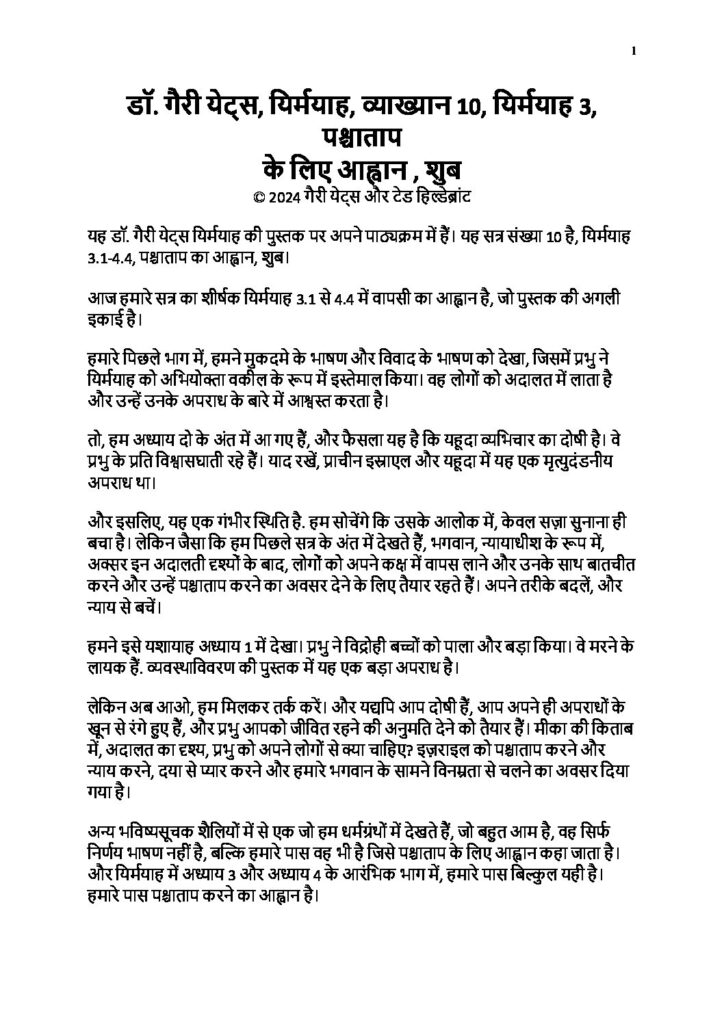 1
डॉ. गैरी येट्स, यिर्मयाह, व्याख्यान 10, यिर्मयाह 3,
पश्चाताप
के लिए आह्वान , शुब
© 2024 गैरी येट्स और टेड हिल्डेब्रांट
यह डॉ. गैरी येट्स यिर्मयाह की पुस्तक पर अपने पाठ्यक्रम में हैं। यह सत्र संख्या 10 है, यिर्मयाह
3.1-4.4, पश्चाताप का आह्वान, शुब।
आज हमारे सत्र का शीर्षक यिर्मयाह 3.1 से 4.4 में वापसी का आह्वान है, जो पुस्तक की अगली
इकाई है।
हमारे पिछले भाग में, हमने मुकदमे के भाषण और विवाद के भाषण को देखा, जिसमें प्रभु ने
यिर्मयाह को अभियोक्ता वकील के रूप में इस्तेमाल किया। वह लोगों को अदालत में लाता है
और उन्हें उनके अपराध के बारे में आश्वस्त करता है।
तो, हम अध्याय दो के अंत में आ गए हैं, और फैसला यह है कि यहूदा व्यभिचार का दोषी है। वे
प्रभु के प्रति विश्वासघाती रहे हैं। याद रखें, प्राचीन इस्राएल और यहूदा में यह एक मृत्युदंडनीय
अपराध था।
और इसलिए, यह एक गंभीर स्थिति है. हम सोचेंगे कि उसके आलोक में, केवल सज़ा सुनाना ही
बचा है। लेकिन जैसा कि हम पिछले सत्र के अंत में देखते हैं, भगवान, न्यायाधीश के रूप में,
अक्सर इन अदालती दृश्यों के बाद, लोगों को अपने कक्ष में वापस लाने और उनके साथ बातचीत
करने और उन्हें पश्चाताप करने का अवसर देने के लिए तैयार रहते हैं। अपने तरीके बदलें, और
न्याय से बचें।
हमने इसे यशायाह अध्याय 1 में देखा। प्रभु ने विद्रोही बच्चों को पाला और बड़ा किया। वे मरने के
लायक हैं. व्यवस्थाविवरण की पुस्तक में यह एक बड़ा अपराध है।
लेकिन अब आओ, हम मिलकर तर्क करें। और यद्यपि आप दोषी हैं, आप अपने ही अपराधों के
खून से रंगे हुए हैं, और प्रभु आपको जीवित रहने की अनुमति देने को तैयार हैं। मीका की किताब
में, अदालत का दृश्य, प्रभु को अपने लोगों से क्या चाहिए? इज़राइल को पश्चाताप करने और
न्याय करने, दया से प्यार करने और हमारे भगवान के सामने विनम्रता से चलने का अवसर दिया
गया है।
अन्य भविष्यसूचक शैलियों में से एक जो हम धर्मग्रंथों में देखते हैं, जो बहुत आम है, वह सिर्फ
निर्णय भाषण नहीं है, बल्कि हमारे पास वह भी है जिसे पश्चाताप के लिए आह्वान कहा जाता है।
और यिर्मयाह में अध्याय 3 और अध्याय 4 के आरंभिक भाग में, हमारे पास बिल्कुल यही है।
हमारे पास पश्चाताप करने का आह्वान है।